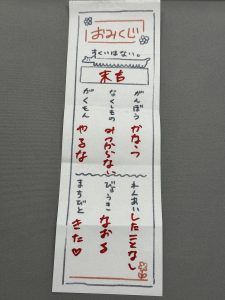 おみくじ
すくいはない。
末吉
がんぼう かなう
なくしもの みつからない
がくもん やるな
れんあい したことなし
びょうき なおる
まちびと きた♡